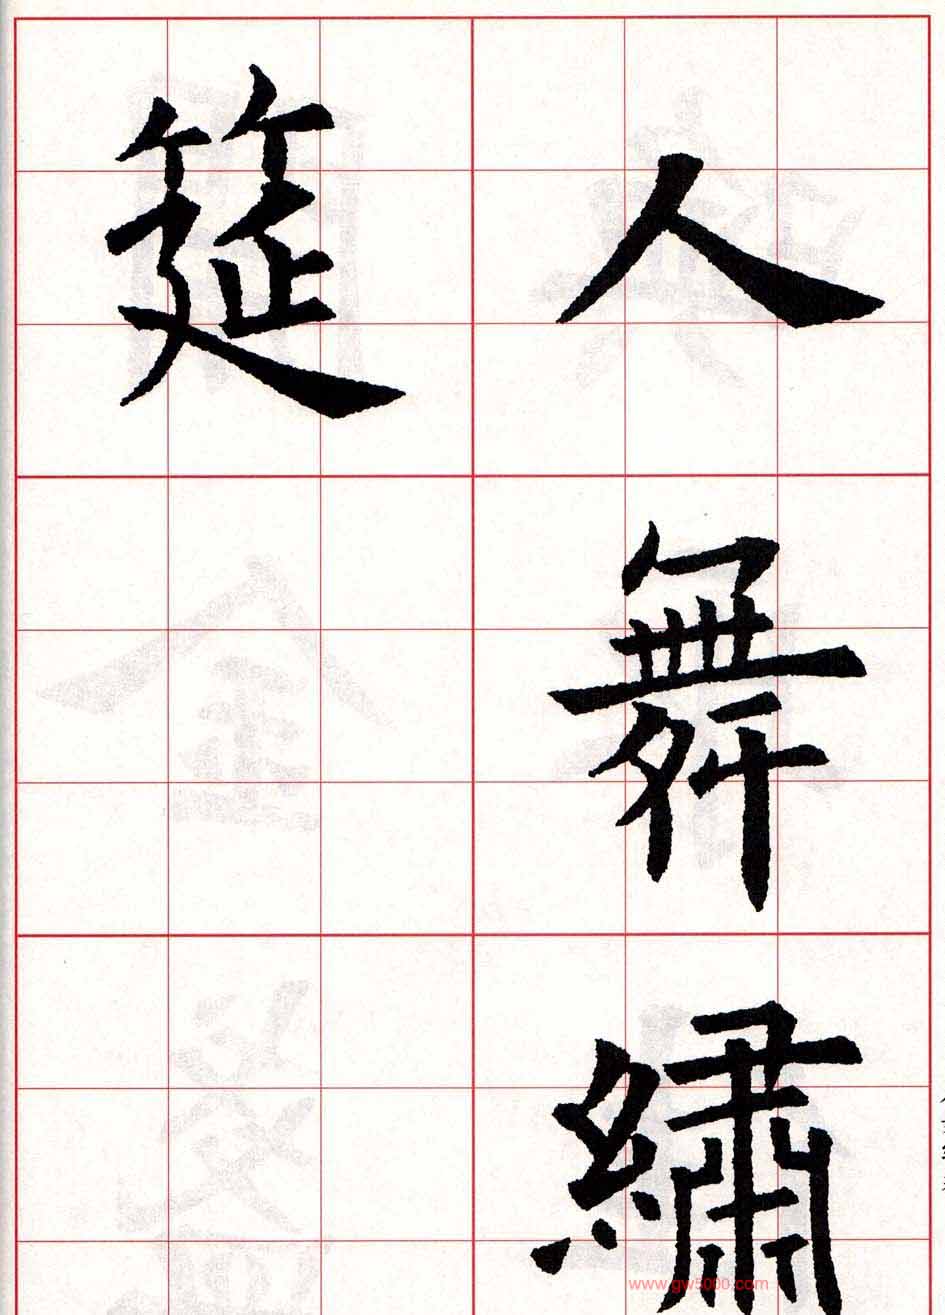 人舞繡
筵
www.gw5000.com